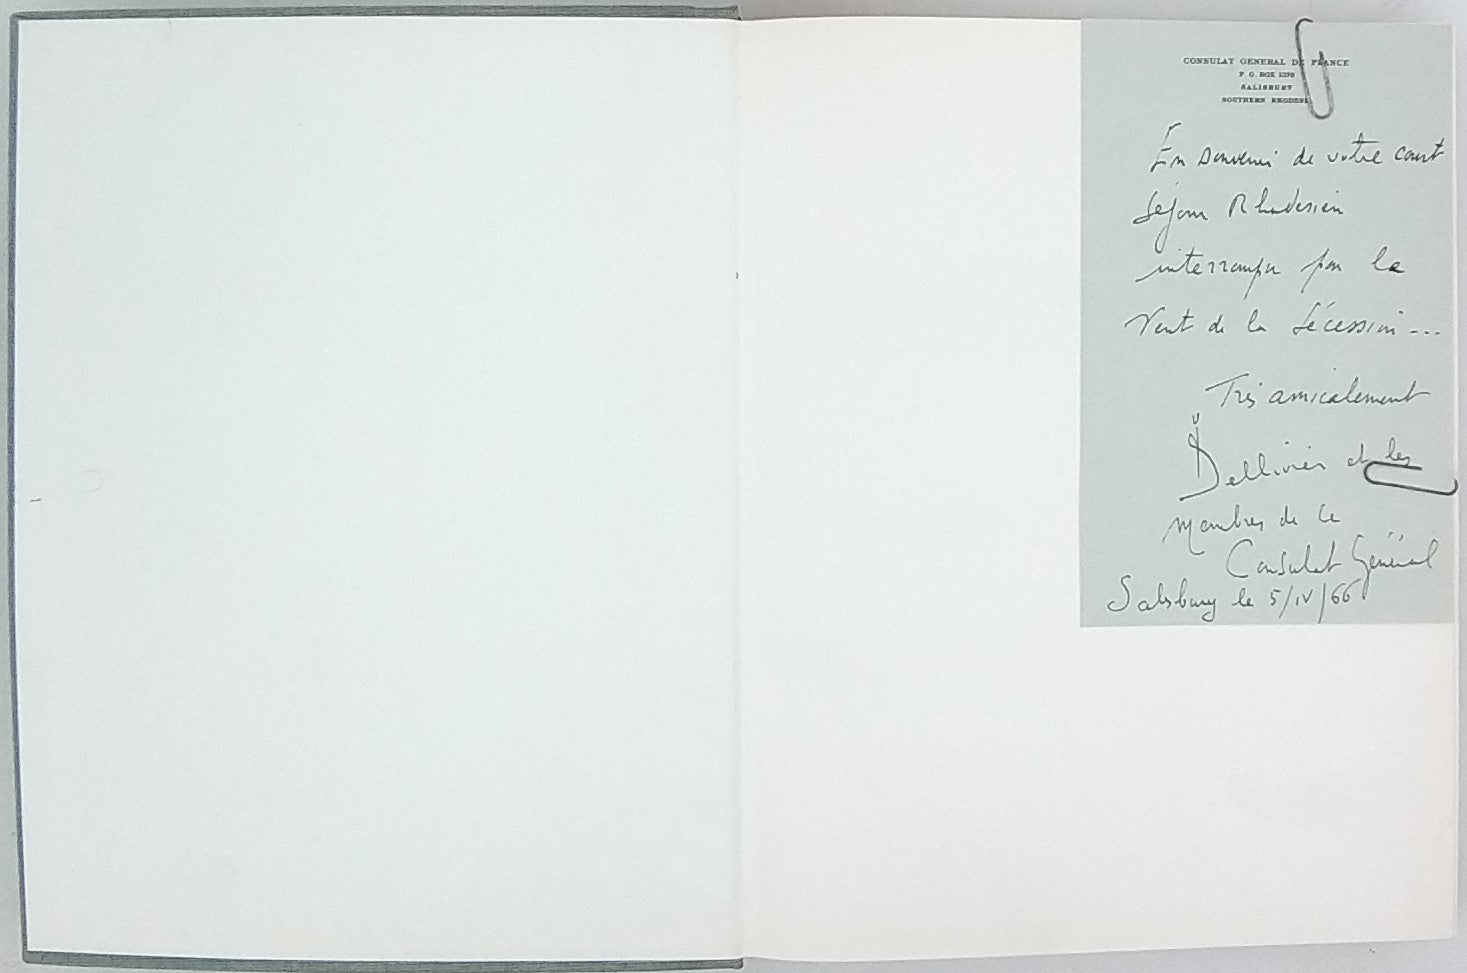 CONSULAT GENERAL DE FRANCE
P. O. BOX 1378
SALISBURY
SOUTHERN RHODESI
En souvenir de votre court
Séjour Rhodesien
interrompu par le
Vent de la Sécession ...
Très amicalement
et les
membres de ce
Consulat Général
Salsbury le 5/IV/66